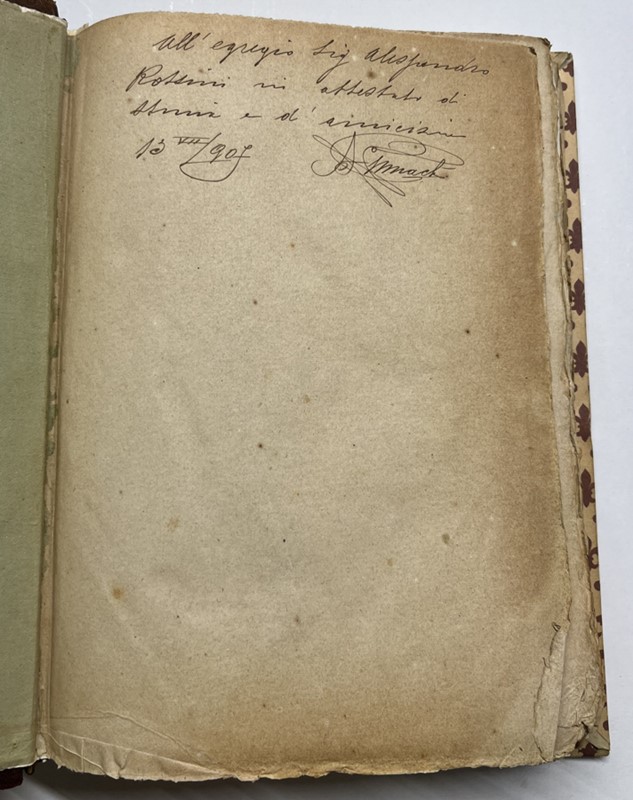 All' egregio Sig Alessandro
Rossini in attestato di
stima e d' amicizia
13 VII/907